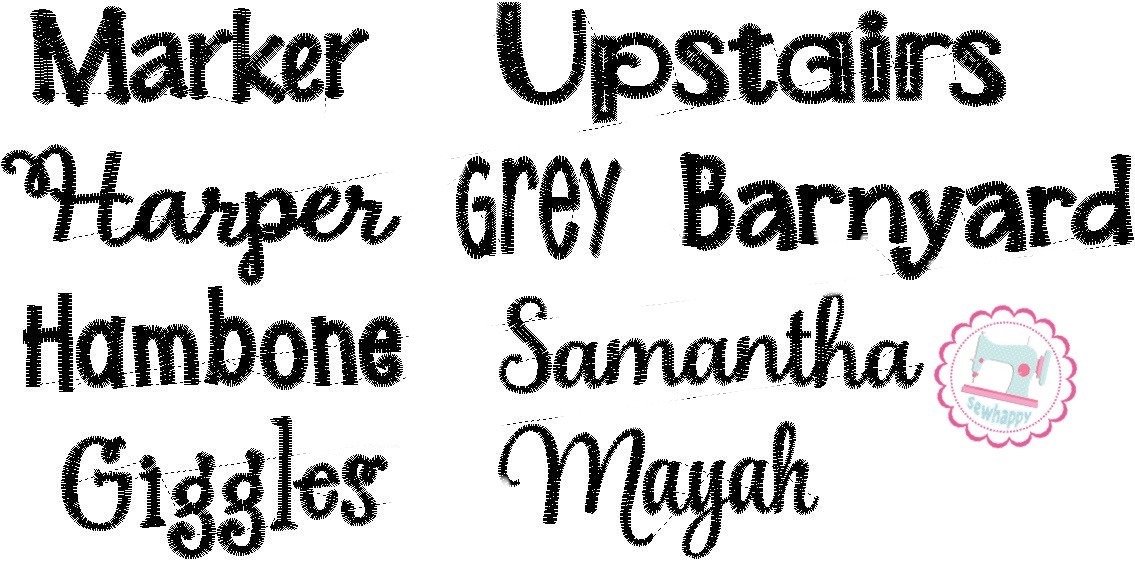 Marker Upstairs
Harper Grey Barnyard
Hambone Samantha
sewhappy
Giggles Mayah